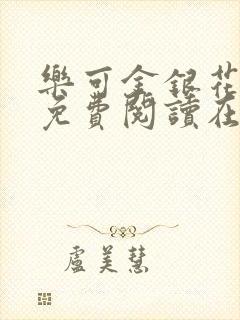 樂可金銀花
免費閱讀在
盧美慧